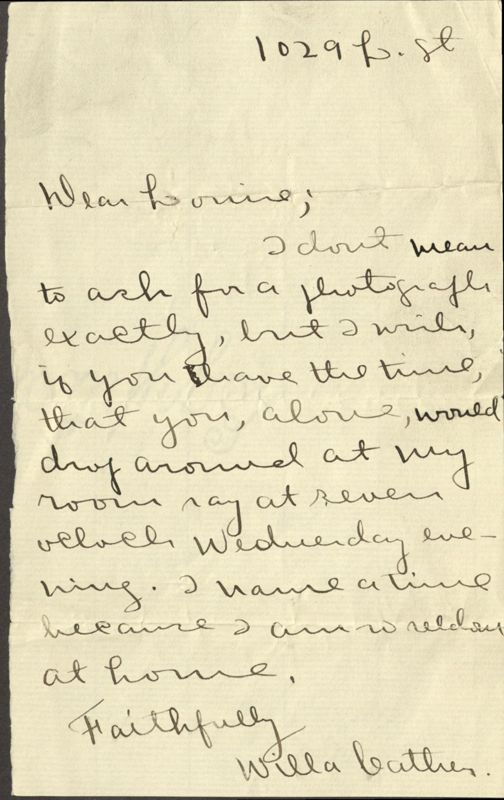 1029 L. st
Dear Louise;
I dont mean
to ask for a photograph
exactly, but I wish,
if you have the time,
that you, alone, would
drop around at my
room say at seven
oclock Wednesday eve-
ning. I name a time
because I am so seldom
at home.
Faithfully
Willa Cather.